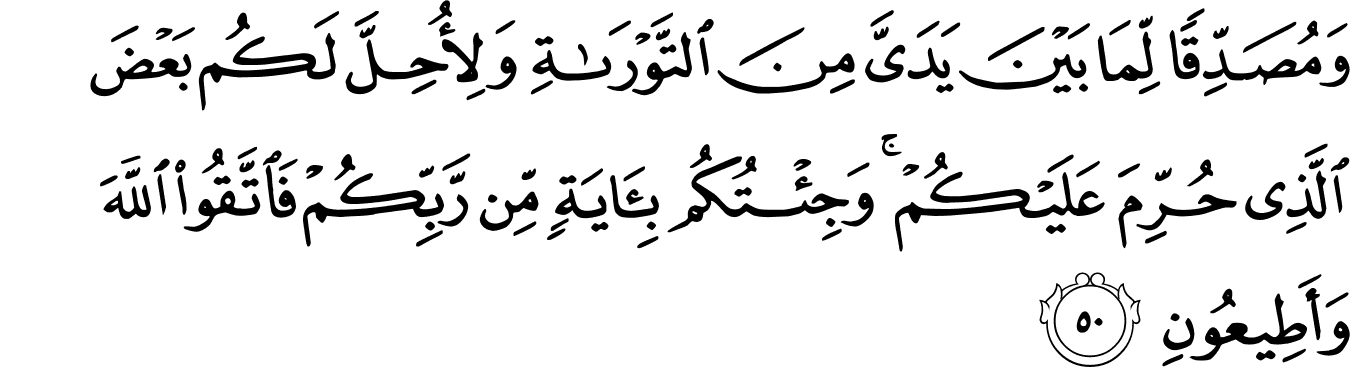 وَمُصَدِّقًا لِّمَا بَيْنَ يَدَىَّ مِنَ ٱلتَّوْرَىٰةِ وَلِأُحِلَّ لَكُم بَعْضَ
ٱلَّذِى حُرِّمَ عَلَيْكُمْ ۚ وَجِئْتُكُم بِـَٔايَةٍ مِّن رَّبِّكُمْ فَٱتَّقُوا۟ ٱللَّهَ
وَأَطِيعُونِ ٥٠